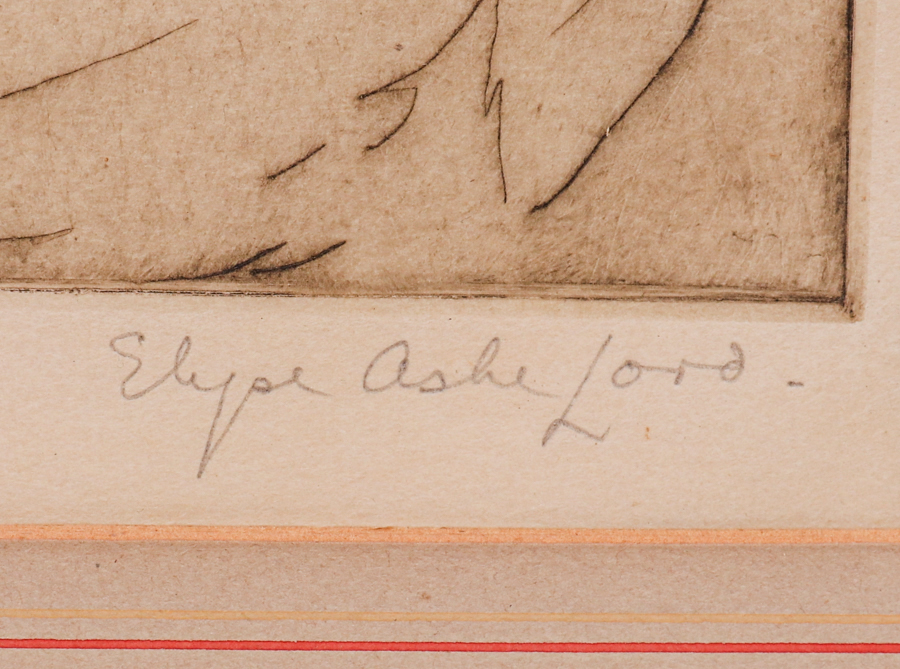 Elyse Ashe Lord.